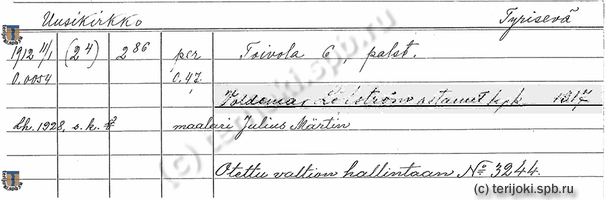 Uusikirkko Tyrisevä
1912 11/1 (2⁴) 2⁸⁶ pcr Toivola 6, palst.
0.0054 0.47
Voldemar Löfström ostanut k.p.k. 1317
Lk. 1928, s. k. maalari Julius Märtin
Otettu valtion hallintaan № 3244.
(c) terijoki.spb.ru
(c) terijoki.spb.ru